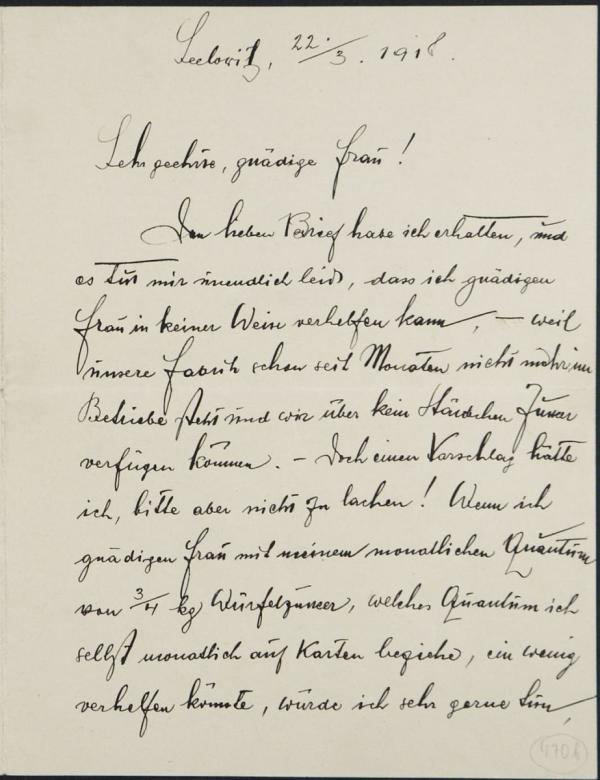 Seelowitz, 22./3. 1918.
Sehr geehrte, gnädige Frau!
Den lieben Brief habe ich erhalten, und
es tut mir unendlich leid, dass ich gnädigen
Frau in keiner Weise verhelfen kann, — weil
unsere Fabrik schon seit Monaten nicht mehr im
Betriebe steht und wir über kein Stäubchen Zucker
verfügen können. — Doch einen Vorschlag hätte
ich, bitte aber nicht zu lachen! Wenn ich
gnädigen Frau mit meinem monatlichen Quantum
von 3/4 kg Würfelzucker, welches Quantum ich
selbst monatlich auf Karten beziehe, ein wenig
verhelfen könnte, würde ich sehr gerne tun,